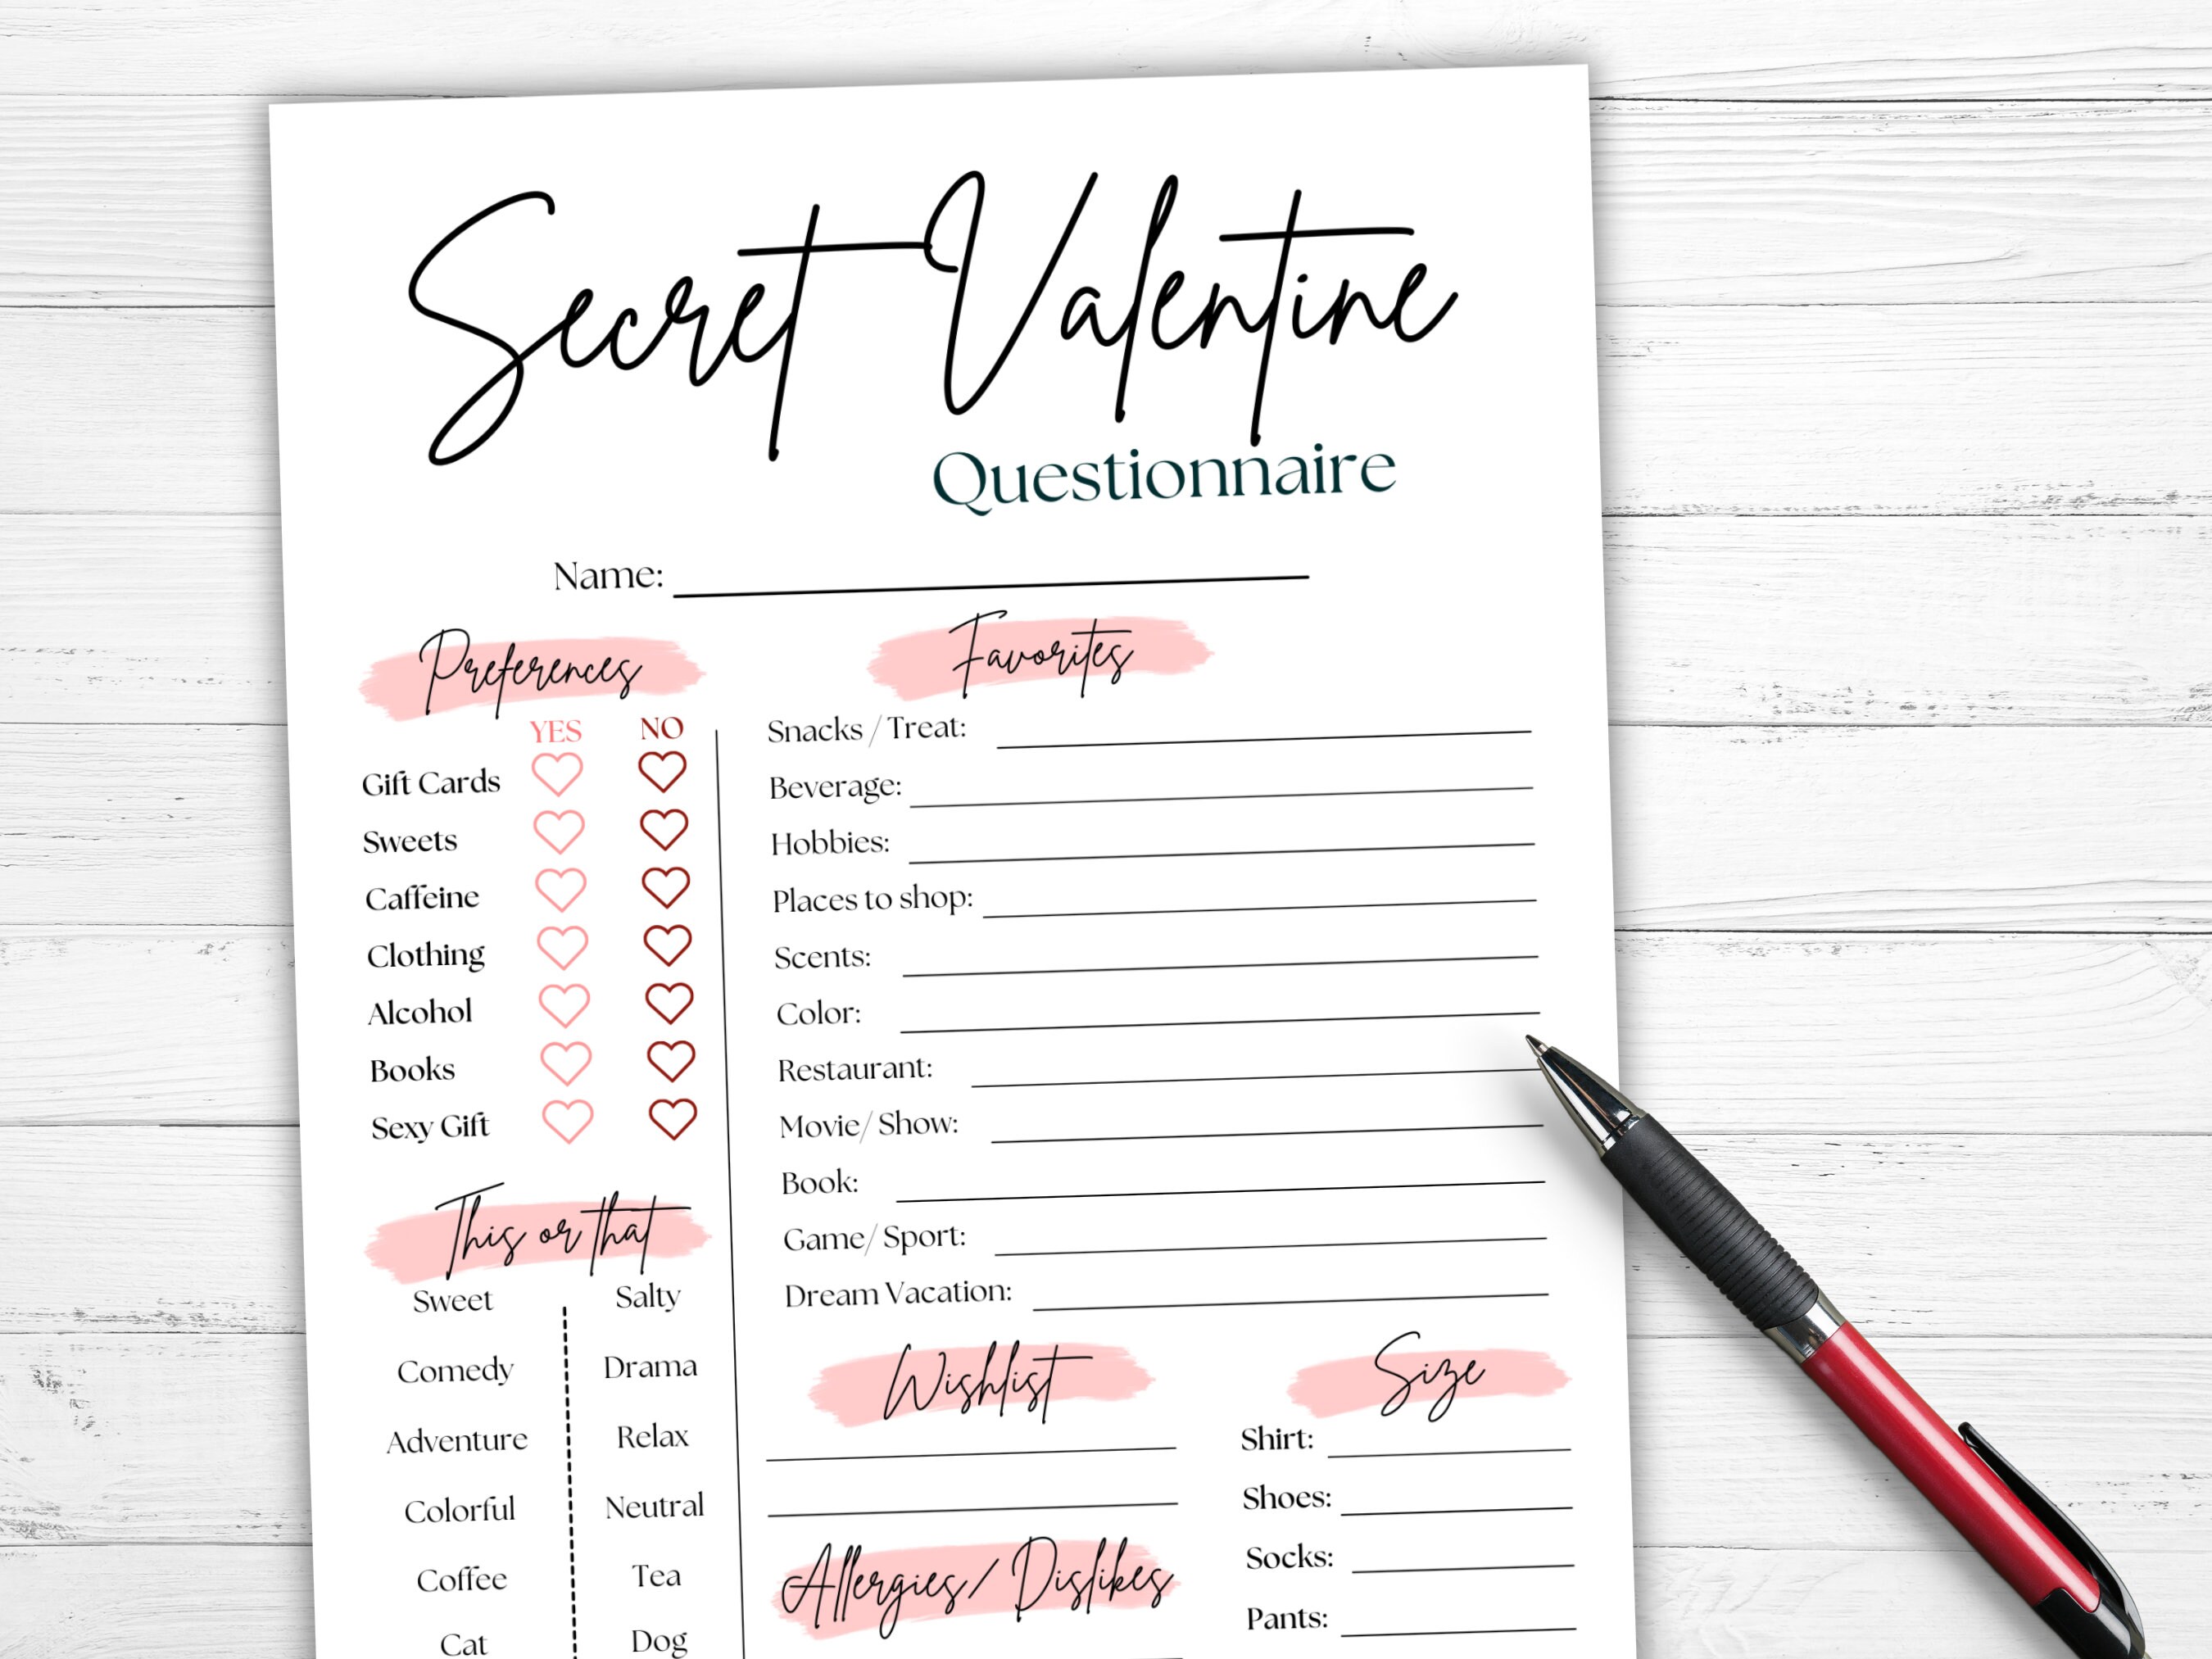 Secret Valentine
Questionnaire
Name:
Preferences
YES NO
Gift Cards
Sweets
Caffeine
Clothing
Alcohol
Books
Sexy Gift
This or that
Sweet Salty
Comedy Drama
Adventure Relax
Colorful Neutral
Coffee Tea
Cat Dog
Favorites
Snacks / Treat:
Beverage:
Hobbies:
Places to shop:
Scents:
Color:
Restaurant:
Movie/ Show:
Book:
Game/ Sport:
Dream Vacation:
Wishlist
Allergies/ Dislikes
Size
Shirt:
Shoes:
Socks:
Pants: